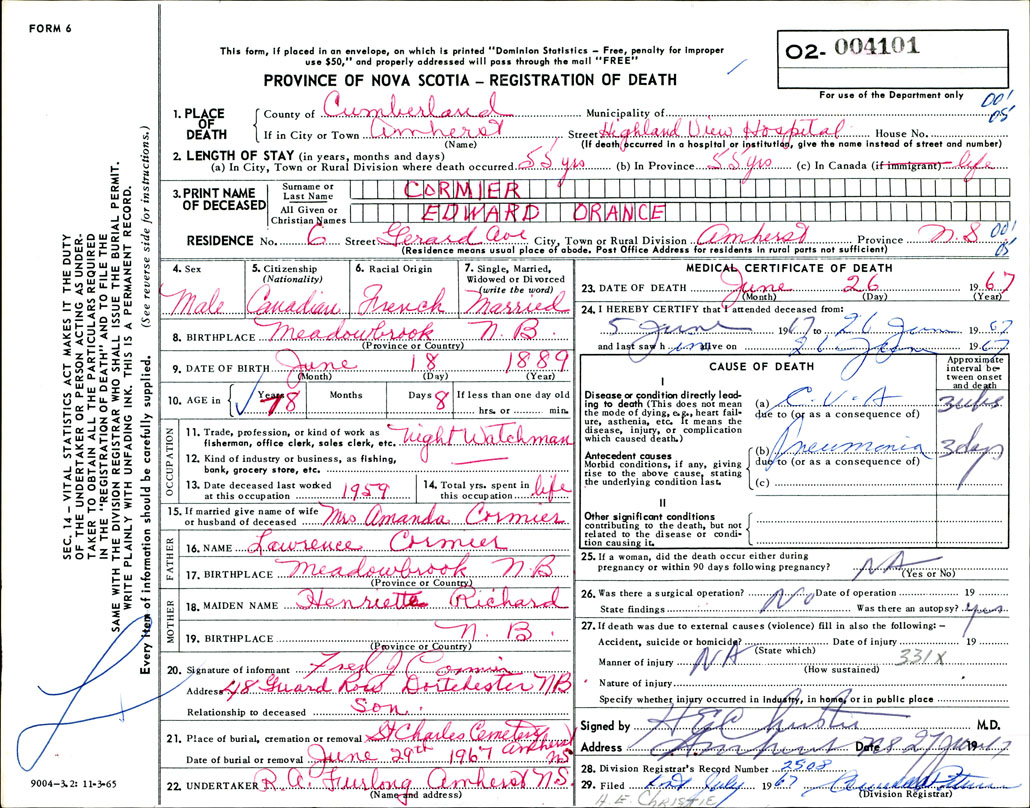 FORM 6
This form, if placed in an envelope, on which is printed "Dominion Statistics – Free, penalty for improper
use $50," and properly addressed will pass through the mail "FREE"
PROVINCE OF NOVA SCOTIA – REGISTRATION OF DEATH
02- 004101
For use of the Department only
001
05
SEC. 14 – VITAL STATISTICS ACT MAKES IT THE DUTY
OF THE UNDERTAKER OR PERSON ACTING AS UNDER-
TAKER TO OBTAIN ALL THE PARTICULARS REQUIRED
IN THE "REGISTRATION OF DEATH" AND TO FILE THE
SAME WITH THE DIVISION REGISTRAR WHO SHALL ISSUE THE BURIAL PERMIT.
WRITE PLAINLY WITH UNFADING INK. THIS IS A PERMANENT RECORD.
Every item of information should be carefully supplied. (See reverse side for instructions.)
1. PLACE OF DEATH County of Cumberland Municipality of
If in City or Town Amherst Street Highland View Hospital House No.
(Name) (If death occurred in a hospital or institution, give the name instead of street and number)
2. LENGTH OF STAY (in years, months and days)
(a) In City, Town or Rural Division where death occurred 55 yrs (b) In Province 55 yrs (c) In Canada (if immigrant) life
3. PRINT NAME OF DECEASED Surname or Last Name CORMIER
All Given or Christian Names EDWARD ORANCE
RESIDENCE No. 6 Street Gerard Ave City, Town or Rural Division Amherst Province N.S 001
(Residence means usual place of abode. Post Office Address for residents in rural parts not sufficient) 05
4. Sex 5. Citizenship (Nationality) 6. Racial Origin 7. Single, Married, Widowed or Divorced (write the word)
Male Canadian French Married
8. BIRTHPLACE Meadowbrook N.B.
(Province or Country)
9. DATE OF BIRTH June 18 1889
(Month) (Day) (Year)
10. AGE in Years 78 Months Days 8 If less than one day old
hrs. or min.
OCCUPATION
11. Trade, profession, or kind of work as
fisherman, office clerk, sales clerk, etc. Night Watchman
12. Kind of industry or business, as fishing,
bank, grocery store, etc.
13. Date deceased last worked
at this occupation 1959
14. Total yrs. spent in
this occupation life
15. If married give name of wife
or husband of deceased Mrs Amanda Cormier
FATHER
16. NAME Lawrence Cormier
17. BIRTHPLACE Meadowbrook N.B
(Province or Country)
MOTHER
18. MAIDEN NAME Henriette Richard
19. BIRTHPLACE N.B.
(Province or Country)
20. Signature of informant Fred J Cormier
Address 48 Guard Row Dorchester NB
Relationship to deceased Son
21. Place of burial, cremation or removal St Charles Cemetery
Date of burial or removal June 29th 1967 Amherst NS
22. UNDERTAKER R.A. Furlong Amherst N.S.
(Name and address)
9004–3.2: 11-3-65
MEDICAL CERTIFICATE OF DEATH
23. DATE OF DEATH June 26 1967
(Month) (Day) (Year)
24. I HEREBY CERTIFY that I attended deceased from:
5 June 1967 to 26 June 1967
and last saw him alive on 26 June 1967
CAUSE OF DEATH
Approximate interval between onset and death
I
Disease or condition directly lead-
ing to death (This does not mean
the mode of dying, e.g., heart fail-
ure, asthenia, etc. It means the
disease, injury, or complication
which caused death.)
(a) C.V.A 3 wks
due to (or as a consequence of)
Antecedent causes
Morbid conditions, if any, giving
rise to the above cause, stating
the underlying condition last.
(b) Pneumonia 3 days
due to (or as a consequence of)
(c)
II
Other significant conditions
contributing to the death, but not
related to the disease or condi-
tion causing it.
25. If a woman, did the death occur either during
pregnancy or within 90 days following pregnancy? NA
(Yes or No)
26. Was there a surgical operation? No Date of operation 19
State findings Was there an autopsy? yes
27. If death was due to external causes (violence) fill in also the following: –
Accident, suicide or homicide? Date of injury 19
(State which)
Manner of injury NA 331X
(How sustained)
Nature of injury
Specify whether injury occurred in industry, in home, or in public place
Signed by H E Christie M.D.
Address Amherst N.S Date 27 June 1967
28. Division Registrar's Record Number 2508
29. Filed July 1967
(Division Registrar)
H.E. CHRISTIE